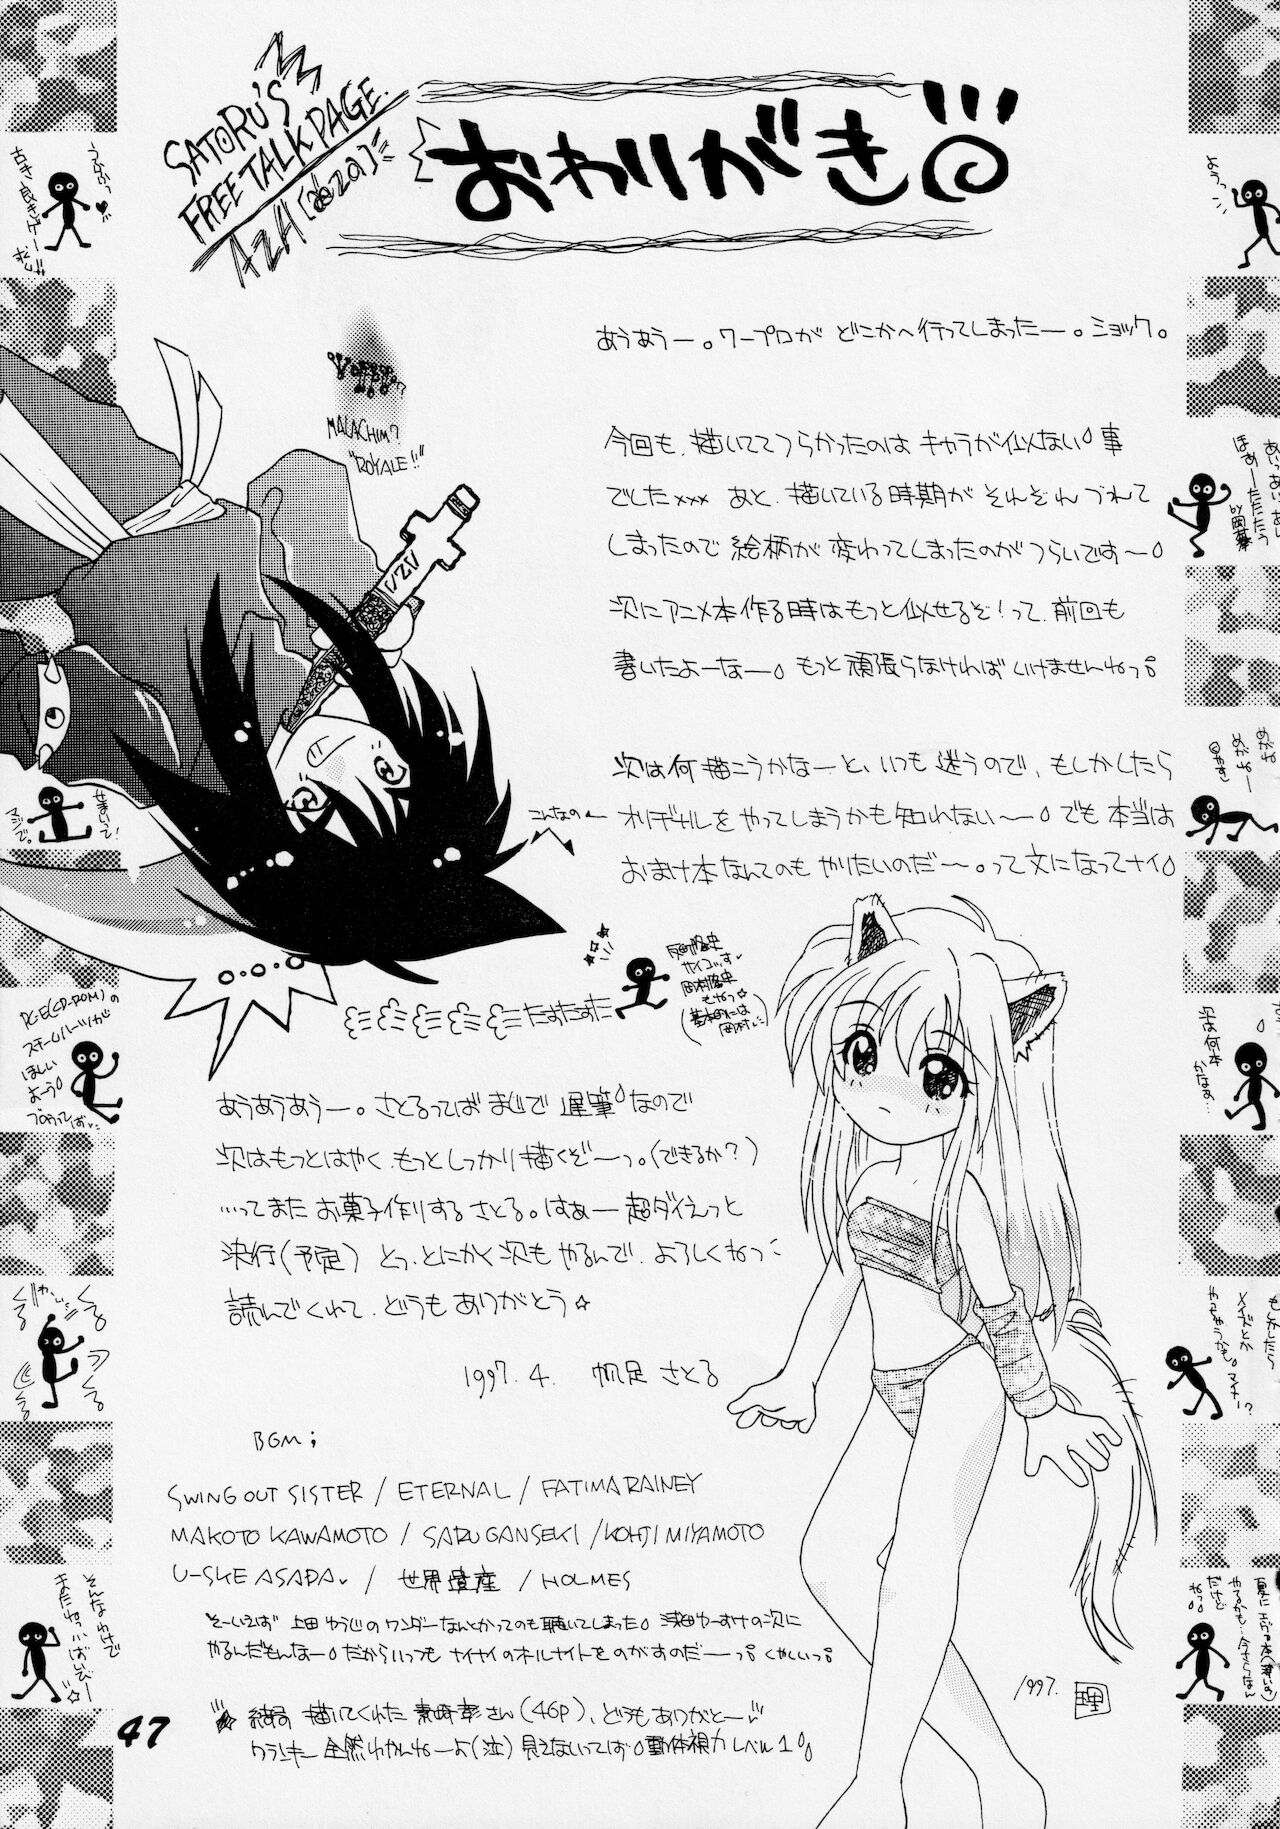 SATORU'S
FREE TALK PAGE.
おわりがき
あうあうー。ワープロが どこかへ行ってしまったー。ショック。
MALACHIM?
"ROYALE!!"
今回も、描いててつらかったのは キャラが似ない事
でした××× あと、描いている時期が それぞれ づれて
しまったので 絵柄が 変わってしまったのが つらいです〜
次にアニメ本作る時はもっと似せるぞ!って、前回も
書いたよーなー もっと頑張らなければ いけませんねっ
次は何描こうかなーと、いつも迷うので、もしかしたら
オリヂナルをやってしまうかも知れない〜 でも本当は
おまけ本なんてのも やりたいのだ〜。って文になってナイ
こんなの
たすたすた
あうあうあうー。さとるってば まじで 遅筆なので
次はもっとはやく、もっとしっかり描くぞーっ。(できるか?)
…ってまた お菓子作りするさとる。はぁー 超ダイえっと
決行(予定) とっ、とにかく次も やるんで、よろしくねっ
読んでくれて、どうもありがとう☆
1997.4. 帆足 さとる
BGM;
SWING OUT SISTER / ETERNAL / FATIMA RAINEY
MAKOTO KAWAMOTO / SARU GANSEKI / KOHJI MIYAMOTO
U-SKE ASADA / 世界遺産 / HOLMES
そーいえば 上田 ゆうじの ワンダーなんとかっても 聴いてしまった 浅田ゆーすけの次に
やるんだもんなー だから いつも ナイナイのオールナイトをのがすのだーっ くやしいっ
描いてくれた さん(46P)、どうもありがとー
全然わかんねーよ(泣) 見えないってば 動体視力 レベル1
1997.
47
うふふっ
古き良きゲーマー
せまいって!
マジで。
PCE(CD-ROM)の
スチームハーツが
ほしい
よーう
くるくる
そんなわけで
またねっ ばいびー☆
ようっ
めがね
めがねー
次は何本
かなぁ…
もしかしたら
メイズとか
やっちゃうかも。マイナー?